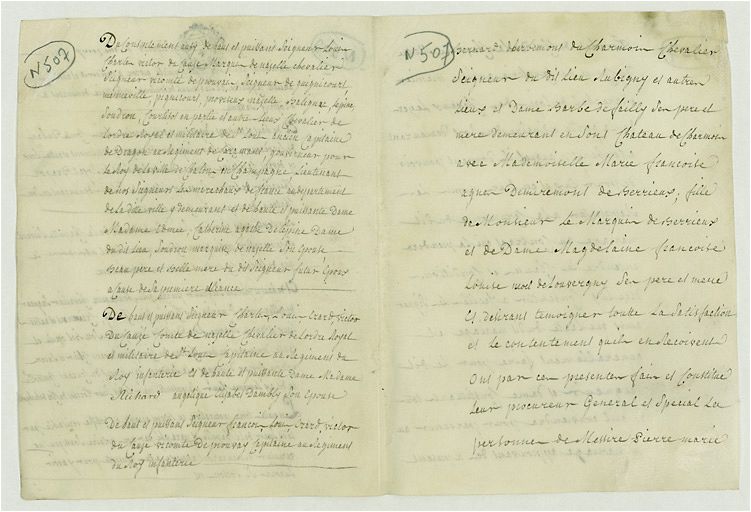 N 507
Du Consentement aussy de haut et puissant Seigneur Louis
Charles victor de Cauze Marquis de nazelle chevalier
Seigneur vicomte de prouvais, Seigneur de guignicourt
menneville, pignicourt, proviseux nazelle,
Soudron, et autres Lieux Chevalier de
Lordre Royal et militaire de St. Louis ancien Capitaine
de Dragons au Regiment de gouverneur pour
le Roy de la ville de Chalon en Champagne, Lieutenant
de Nos Seigneurs Les marechaux de france au departement
de La ditte ville y demeurant et de haute et puissante Dame
Madame Edmée Catherine agathe de Lepine Dame
du dit lieu, Soudron marquise de nazelle Son Epouse
Beau pere et Belle mere du dit Seigneur futur Epoux
a Cause de Sa premiere aliance
De haut et puissant Seigneur Charles, Louis Erard, victor
du Cauzé Comte de nazelle Chevalier de Lordre Royal
et militaire de St. Louis Capitaine au Regiment du
Roy infanterie et de haute et puissante Dame Madame
angelique Elisabet Dambly Son Epouse
De haut et puissant Seigneur francois Louis Erard, victor
du Cauzé vicomte De prouvay Capitaine au Regiment
du Roy infanterie
N 507
Bernard demiremont du Charmoin Chevalier
Seigneur du dit Lieu Aubigny et autres
Lieux et Dame Barbe de failly Ses pere et
mere demeurant en Sont Chateau de Charmoin
avec Mademoiselle Marie francoise
agnes Demiremont de Berrieux, fille
de Monsieur Le Marquis de Berrieux
et de Dame Magdelaine francoise
Louise noel de Louvergny Ses pere et mere
Et desirant temoigner toutte La Satisfaction
et Le contentement quils en Recoivent
Ont par ces presentes fait et Constitué
Leur procureur General et Special La
personne de Messire Pierre marie